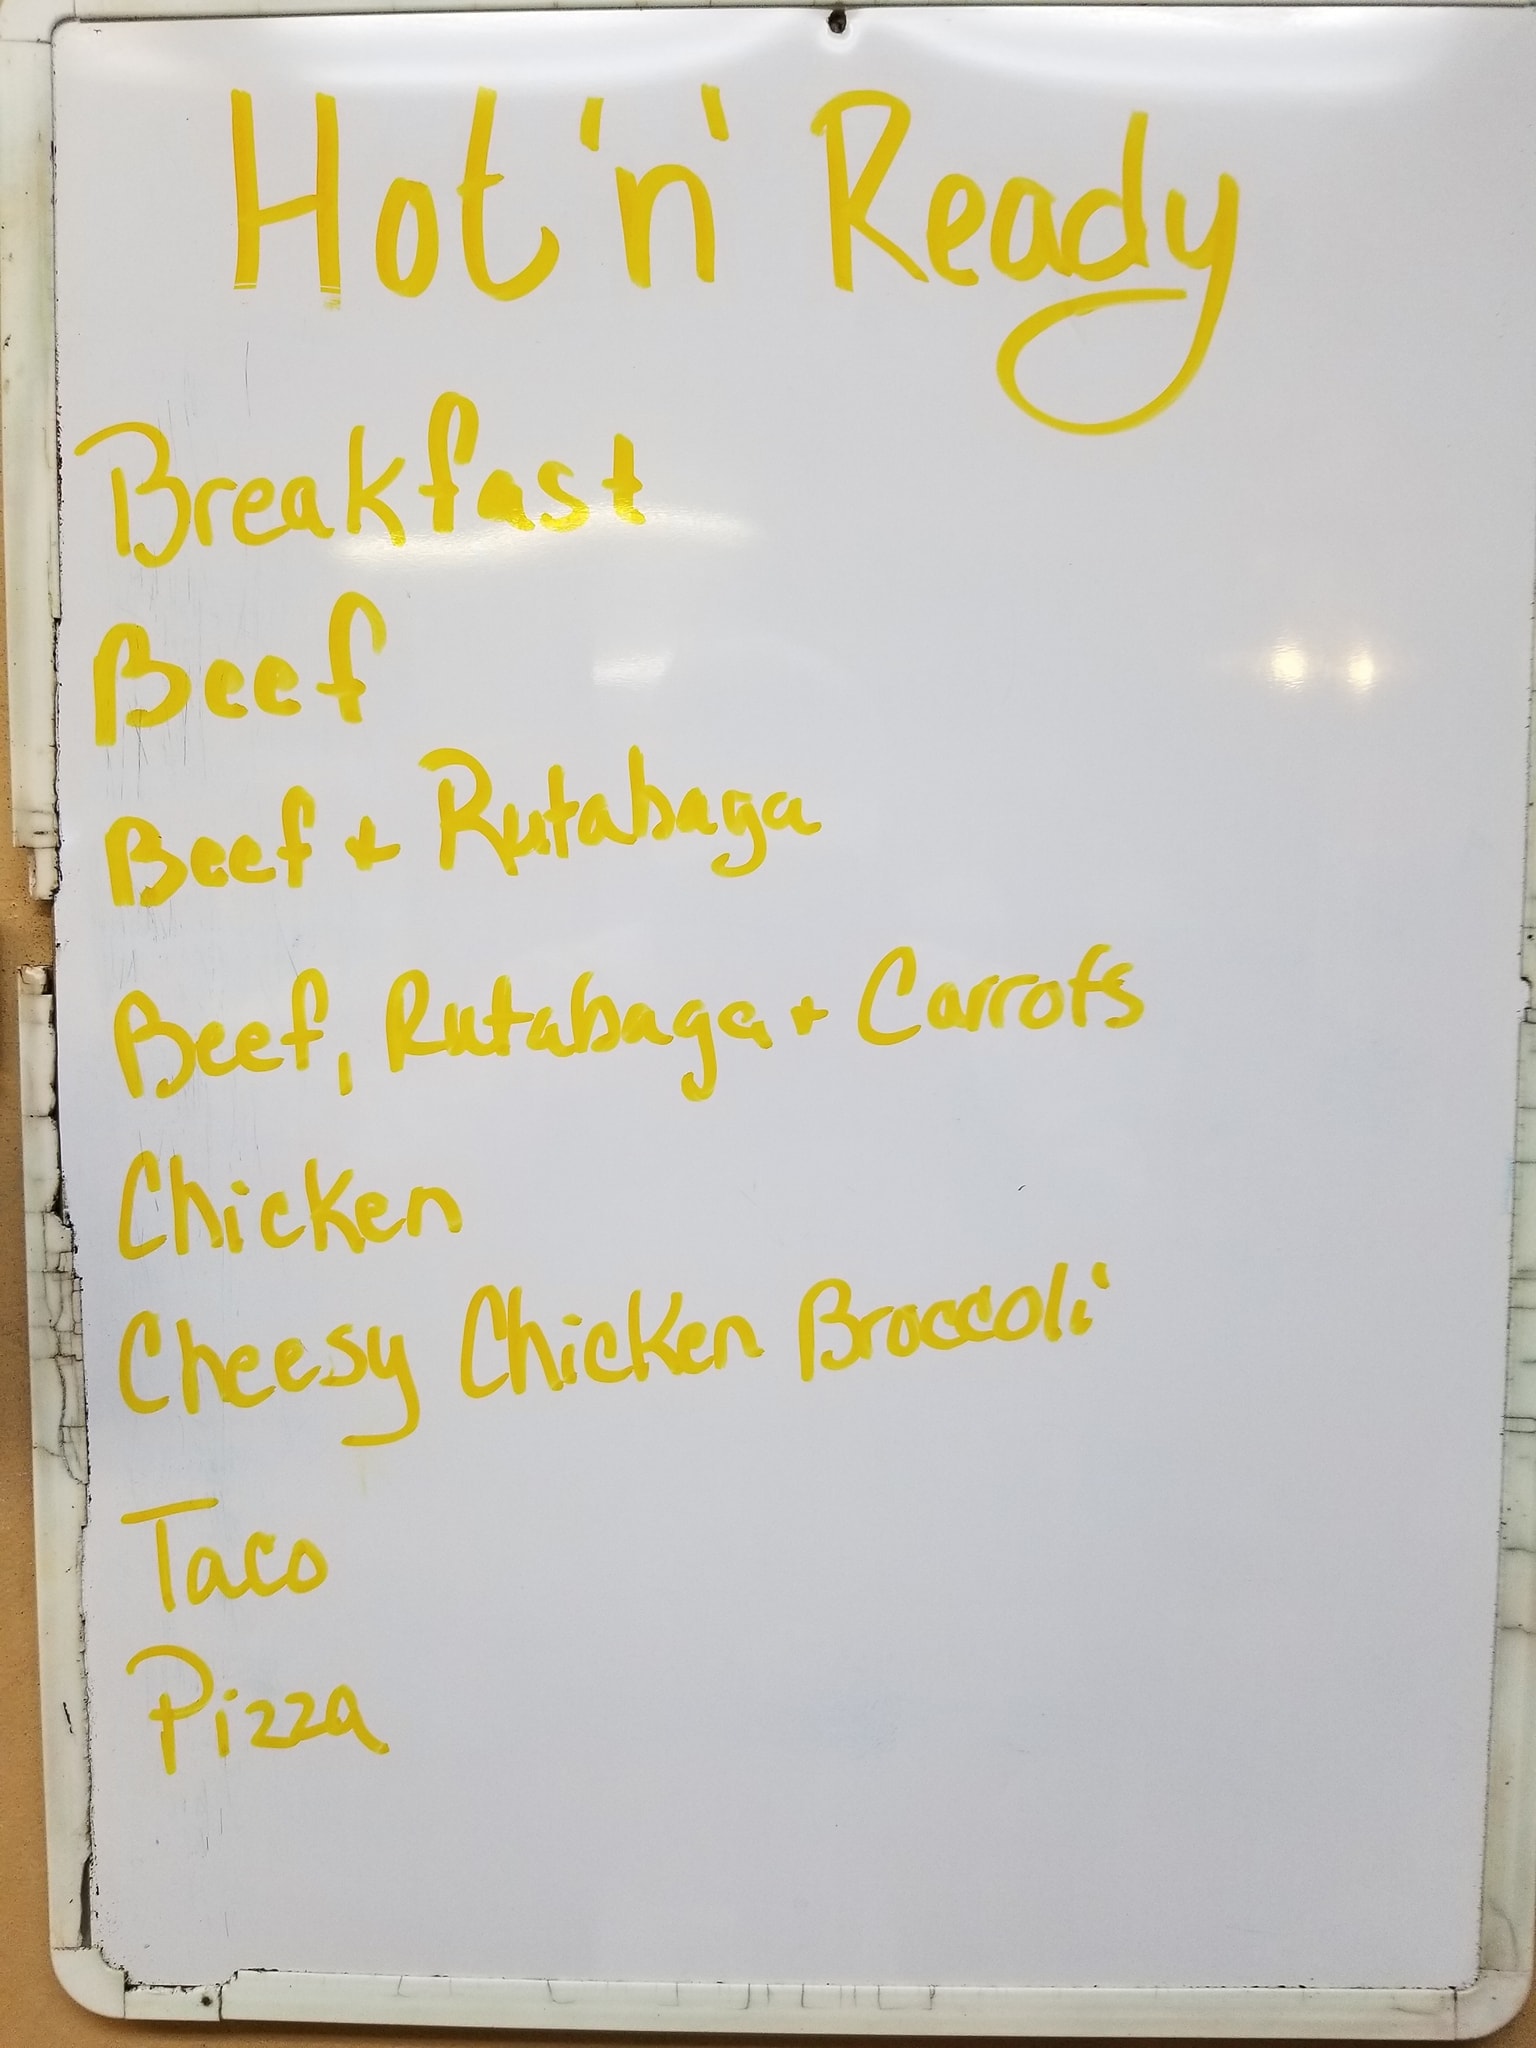 Hot 'n' Ready
Breakfast
Beef
Beef & Rutabaga
Beef, Rutabaga & Carrots
Chicken
Cheesy Chicken Broccoli
Taco
Pizza